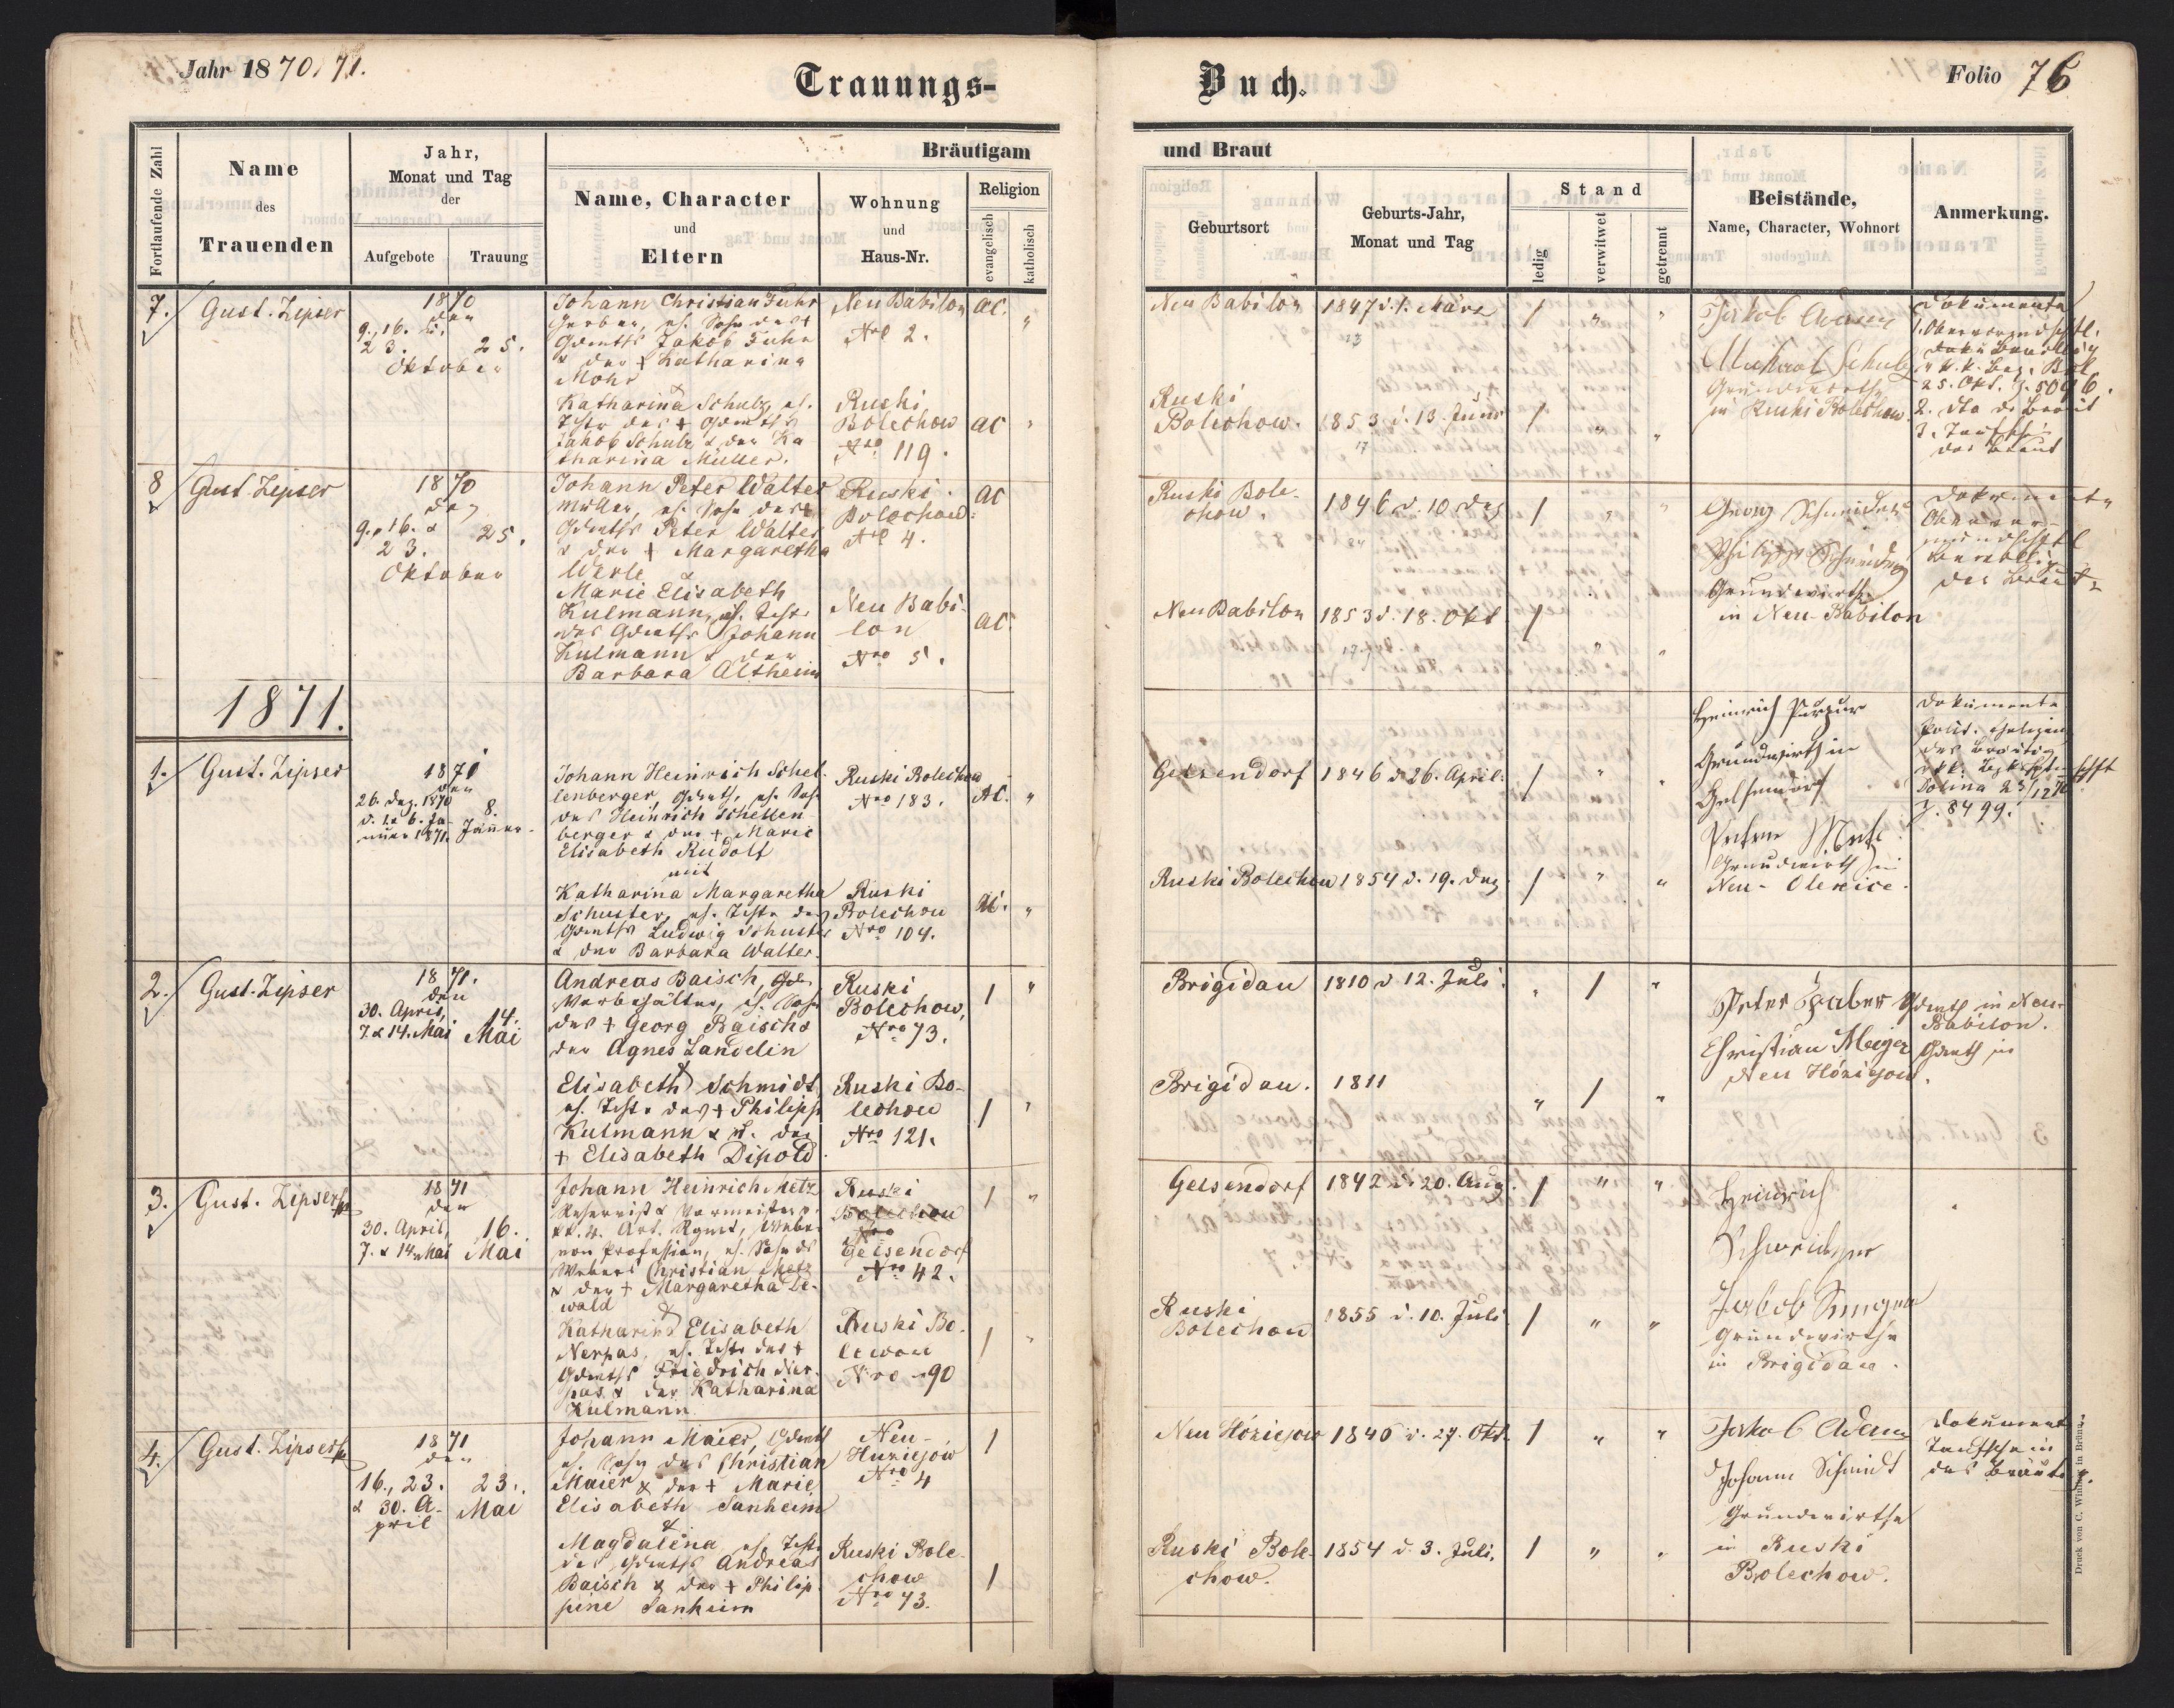 Jahr 1870/71.
Trauungs-
Buch.
Folio 76
Fortlaufende Zahl
Name
des
Trauenden
Jahr,
Monat und Tag
der
Aufgebote
Trauung
Bräutigam
und Braut
Name, Character
und
Eltern
Wohnung
und
Haus-Nr.
Religion
evangelisch
katholisch
Geburtsort
Geburts-Jahr,
Monat und Tag
Stand
ledig
verwitwet
getrennt
Beistände,
Name, Character, Wohnort
Anmerkung.
7.
Gust. Zipser
1870
den
9., 16. &
23.
25.
Oktober
Johann Christian Fuhr
Gerber, eh. Sohn des +
Gdwirths Jakob Fuhr
& der + Katharina
Mohr
&
Katharina Schulz, eh.
Tocht. des + Gdwirths
Jakob Schulz & der Ka
tharina Müller.
Neu Babilon
Nro 2.
Ruski
Bolechow
Nro 119.
AC. "
AC "
Neu Babilon
Ruski
Bolechow.
1847 d. 1. März
23
1853 d. 13. Juni
17
/ " "
/ " "
Jakob Adam
Michael Schulz
Grundwirthe
in Ruski Bolechow.
Dokumente
25. Okt. Z. 5096.
2. dto der Braut
3. Taufschein
der Braut
8
Gust. Zipser
1870
den
9., 16. &
23.
25.
Oktober
Johann Peter Walter
Müller, eh. Sohn des +
Gdwirths Peter Walter
& der + Margaretha
Werle
&
Marie Elisabeth
Kulmann, eh. Tocht.
des Gdwirths Johann
Kulmann & der
Barbara Altheim
Ruski
Bolechow.
Nro 4.
Neu Babi-
lon
Nro 5.
AC
AC.
Ruski Bole-
chow.
Neu Babilon
1846 d. 10 Dez
24
1853 d. 18. Okt
17.
/ " "
/ " "
Georg Schneider
Philipp Schneider
Grundwirthe
in Neu-Babilon
Dokumente
der Braut
1871.
1.
Gust. Zipser
1871
den
26. Dez. 1870
d. 1. & 6. Ja-
nuar 1871.
8.
Jänner.
Johann Heinrich Schel-
lenberger, Gdwirth, eh. Sohn
des Heinrich Schellen
berger & der + Marie
Elisabeth Rudolf
mit
Katharina Margaretha
Schuster, eh. Tocht. des
Gdwirths Ludwig Schuster
& der Barbara Walter.
Ruski Bolechow
Nro 183.
Ruski
Bolechow
Nro 104.
AC. "
AC. "
Gelsendorf
Ruski Bolechow
1846 d. 26. April.
1854 d. 19. Dez.
/ " "
/ " "
Heinrich Purpur
Grundwirth in
Gelsendorf
Grundwirth in
Neu-Olexice.
Dokumente
des Bräutig
Dolina 23/12 70
Z. 8499.
2.
Gust. Zipser
1871.
den
30. April,
7. & 14. Mai
14.
Mai
Andreas Baisch, Gde.
Vorbehälter, eh. Sohn
des + Georg Baisch &
der Agnes Landelin
&
Elisabeth Schmidt,
eh. Tocht. des + Philipp
Kulmann & der
+ Elisabeth Dipold.
Ruski
Bolechow,
Nro 73.
Ruski Bo-
lechow
Nro 121.
/ "
/ "
Brigidau
Brigidau.
1810 d 12. Juli.
1811
" / "
" / "
Peter Faber Gdwirth in Neu-
Babilon.
Christian Mayer Gdwirth in
Neu Hoziejow.
3.
Gust. Zipser
1871
den
30. April,
7. & 14. Mai
16.
Mai
Johann Heinrich Metz
Reservist & Vormeister v.
kk. 4. Art. Rgmt, Weber
von Profession, eh. Sohn des
Webers Christian Metz
& der + Margaretha Le-
wald
&
Katharina Elisabeth
Nerpas, eh. Tocht. des +
Gdwirths Friedrich Ner-
pas & der Katharina
Kulmann
Ruski
Bolechow
Nro
Gelsendorf
Nro 42.
Ruski Bo-
lechow
Nro 90
/ "
/ "
Gelsendorf
Ruski
Bolechow
1842 d. 20. Aug.
1855 d. 10. Juli
/ " "
/ " "
Heinrich
Schweitzer
Jakob
Grundwirthe
in Brigidau.
4.
Gust. Zipser
1871
den
16., 23.
& 30. A-
pril
23.
Mai
Johann Maier, Gdwirth
eh. Sohn des Christian
Maier & der + Marie
Elisabeth Sanheim
&
Magdalena, eh. Tocht.
des Gdwirths Andreas
Baisch & der + Philip
pine Sanheim
Neu-
Huziejow
Nro 4
Ruski Bole-
chow
Nro 73.
/
/
Neu Hoziejow
Ruski Bole-
chow.
1846 d. 27. Okt.
1854 d. 3. Juli.
/ " "
/ " "
Jakob Adam
Johann Schmidt
Grundwirthe
in Ruski
Bolechow.
Dokument
Taufschein
des Bräutig.
Druck von C. Winiker in Brünn.